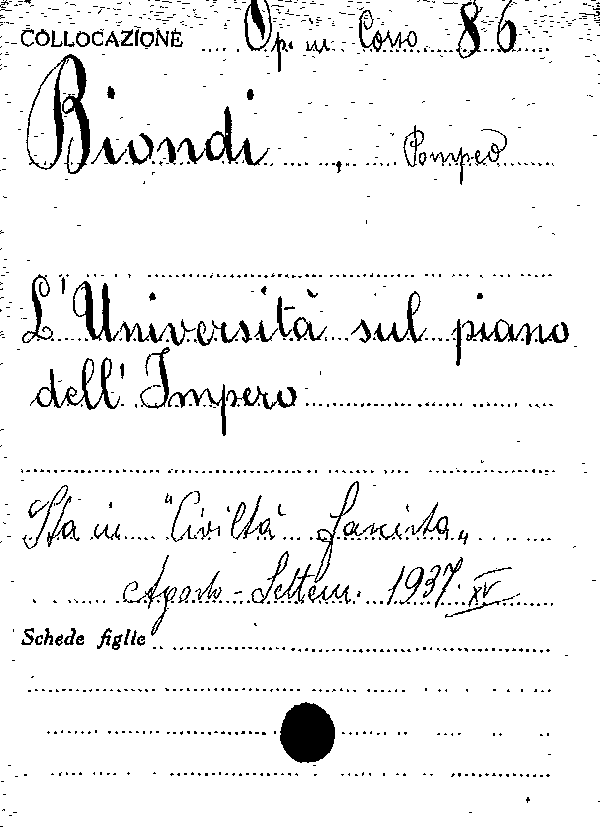 COLLOCAZIONE Op. in Corso 86
Biondi, Pompeo
L'Università sul piano
dell'Impero
Sta in "Civiltà fascista"
Agosto - Settem. 1937. XV
Schede figlie